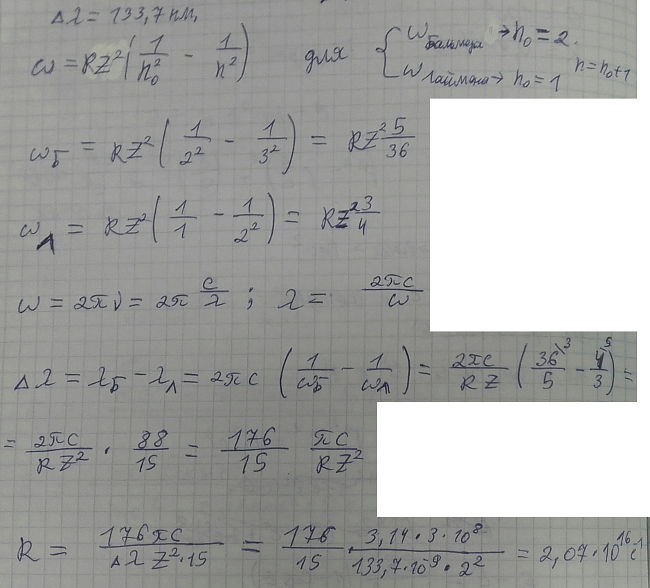 Δλ = 133,7 нм,
ω = RZ² ( 1/n₀² − 1/n² ) для { ω Бальмера → n₀ = 2. ω Лаймана → n₀ = 1 n = n₀+1
ω_Б = RZ² ( 1/2² − 1/3² ) = RZ² 5/36
ω_Л = RZ² ( 1/1 − 1/2² ) = RZ² 3/4
ω = 2πν = 2π c/λ ; λ = 2πc/ω
Δλ = λ_Б − λ_Л = 2πc ( 1/ω_Б − 1/ω_Л ) = 2πc/RZ ( 36\3/5 − 4\5/3 ) =
= 2πc/RZ² · 88/15 = 176/15 πc/RZ²
R = 176πc/Δλ Z²·15 = 176/15 · 3,14·3·10⁸/133,7·10⁻⁹·2² = 2,07·10¹⁶ с⁻¹